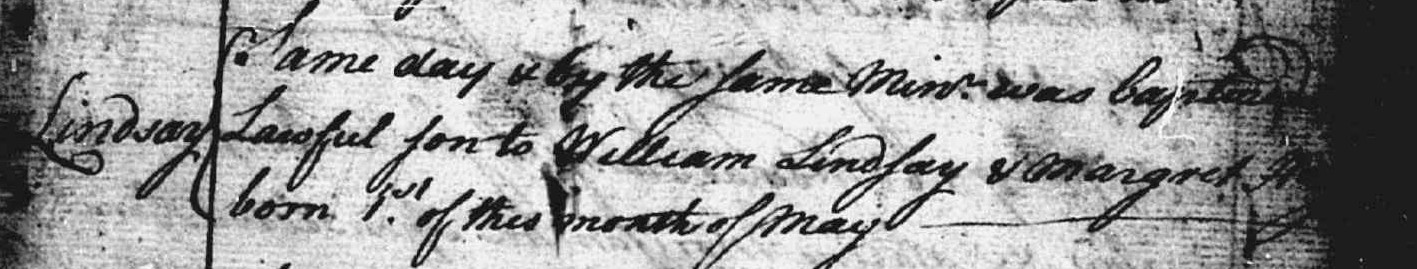 Lindsay
Same day & by the same Minr. was baptized
Lawful son to William Lindsay & Margret
born 1.st of this month of May